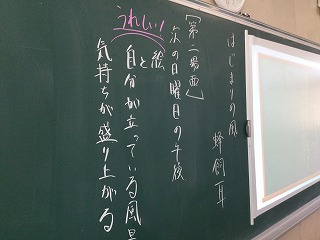 はじまりの風　蜂飼耳
［第二場面］
次の日曜日の午後
うれしい！
絵と
自分が立っている風景
気持ちが盛り上がる